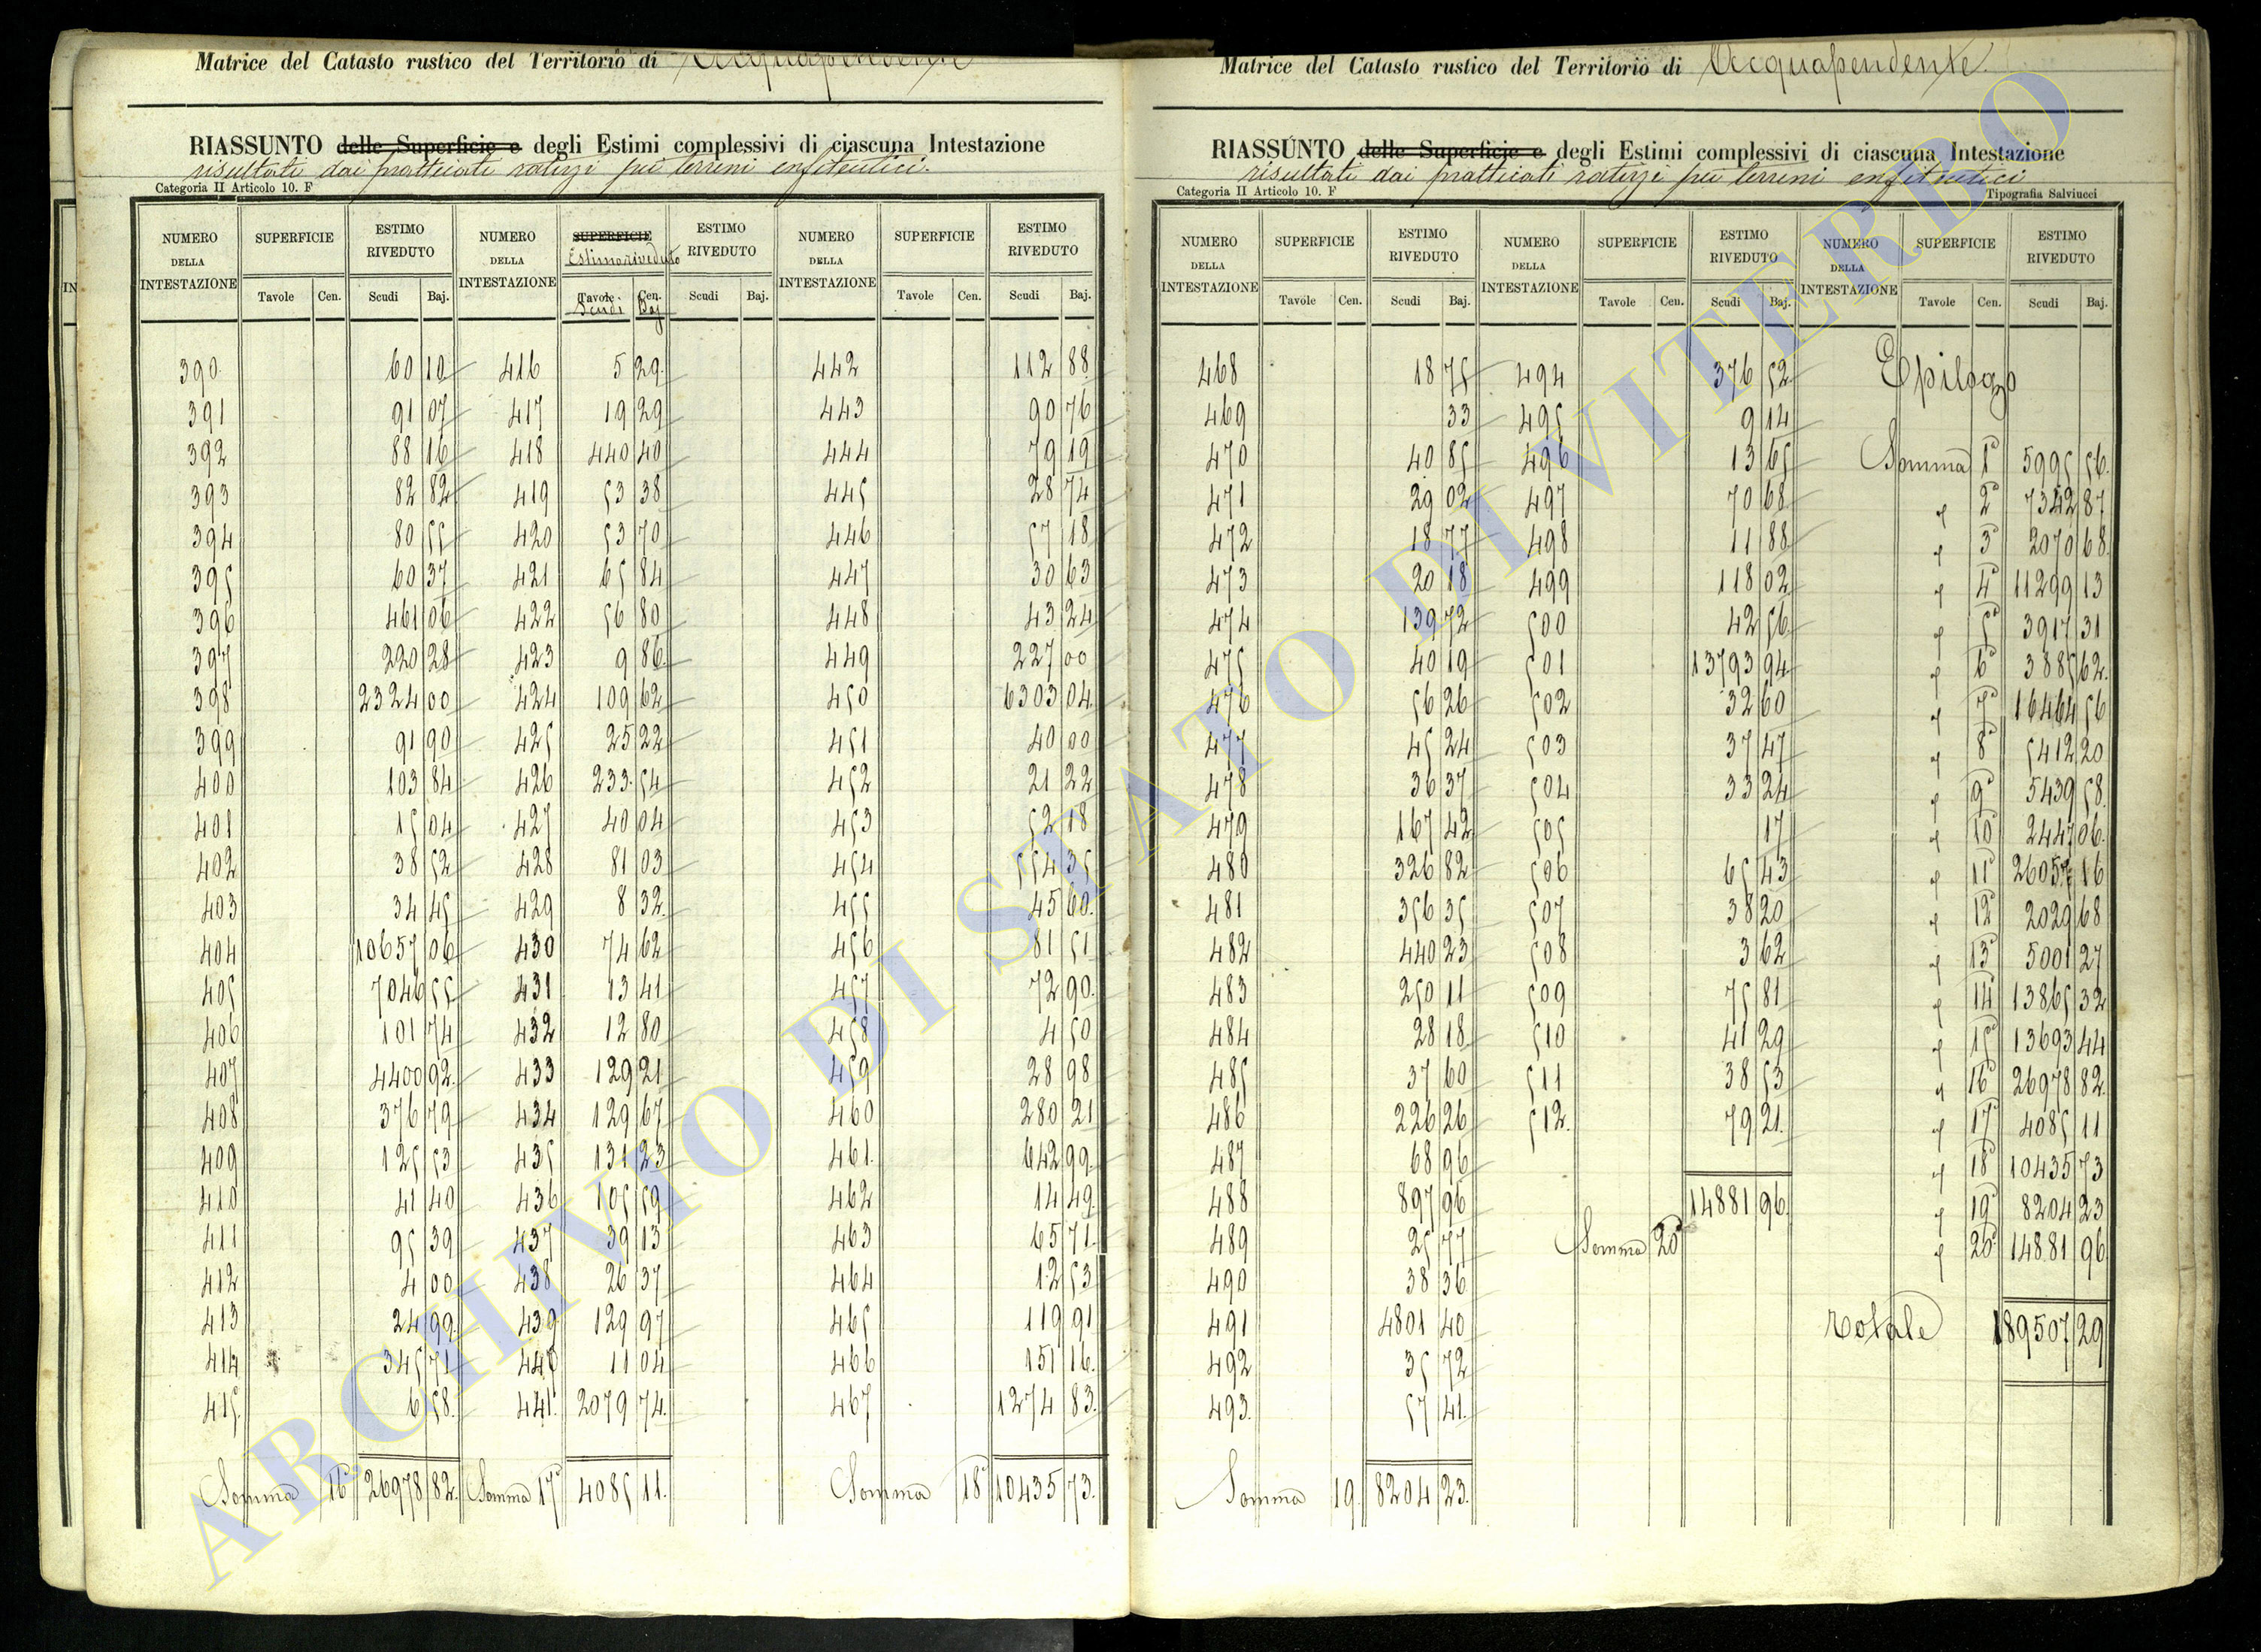 Matrice del Catasto rustico del Territorio di Acquapendente
RIASSUNTO delle Superficie e degli Estimi complessivi di ciascuna Intestazione
risultati dai pratticati ratizzi pei terreni enfiteutici.
Categoria II Articolo 10. F
NUMERO DELLA INTESTAZIONE SUPERFICIE ESTIMO RIVEDUTO NUMERO DELLA INTESTAZIONE SUPERFICIE Estimo riveduto ESTIMO RIVEDUTO NUMERO DELLA INTESTAZIONE SUPERFICIE ESTIMO RIVEDUTO
Tavole Cen. Scudi Baj. Tavole Cen. Scudi Baj. Tavole Cen. Scudi Baj.
Scudi Baj
390 60 10 416 5 29 442 112 88
391 91 07 417 19 29 443 90 76
392 88 16 418 440 40 444 79 19
393 82 82 419 53 38 445 28 74
394 80 55 420 53 70 446 57 18
395 60 37 421 65 84 447 30 63
396 461 06 422 56 80 448 43 24
397 220 28 423 9 86 449 227 00
398 2324 00 424 109 62 450 6303 04
399 91 90 425 25 22 451 40 00
400 103 84 426 233 54 452 21 22
401 15 04 427 40 04 453 52 18
402 38 52 428 81 03 454 554 35
403 34 45 429 8 32 455 45 60
404 10657 06 430 74 62 456 81 51
405 7046 55 431 13 41 457 72 90
406 101 74 432 12 80 458 4 50
407 4400 92 433 129 21 459 28 98
408 376 79 434 129 67 460 280 21
409 125 53 435 131 23 461 642 99
410 41 40 436 105 59 462 14 49
411 95 39 437 39 13 463 65 71
412 4 00 438 26 37 464 12 53
413 24 99 439 129 97 465 119 91
414 345 71 440 11 04 466 151 16
415 6 58 441 2079 74 467 1274 83
Somma 16ª 26978 82 Somma 17ª 4085 11 Somma 18ª 10435 73
Matrice del Catasto rustico del Territorio di Acquapendente
RIASSUNTO delle Superficie e degli Estimi complessivi di ciascuna Intestazione
risultati dai pratticati ratizzi pei terreni enfiteutici
Categoria II Articolo 10. F Tipografia Salviucci
NUMERO DELLA INTESTAZIONE SUPERFICIE ESTIMO RIVEDUTO NUMERO DELLA INTESTAZIONE SUPERFICIE ESTIMO RIVEDUTO NUMERO DELLA INTESTAZIONE SUPERFICIE ESTIMO RIVEDUTO
Tavole Cen. Scudi Baj. Tavole Cen. Scudi Baj. Tavole Cen. Scudi Baj.
468 18 75 494 376 52 Epilogo
469 33 495 9 14
470 40 85 496 13 65 Somma 1ª 5995 56
471 29 02 497 70 68 " 2ª 7342 87
472 18 77 498 11 88 " 3ª 2070 68
473 20 18 499 118 02 " 4ª 11299 13
474 139 72 500 42 56 " 5ª 3917 31
475 40 19 501 13793 94 " 6ª 3885 62
476 56 26 502 32 60 " 7ª 16464 56
477 45 24 503 37 47 " 8ª 5412 20
478 36 37 504 33 24 " 9ª 5439 58
479 167 42 505 17 " 10ª 2447 06
480 326 82 506 65 43 " 11ª 26057 16
481 356 35 507 38 20 " 12ª 2029 68
482 440 23 508 3 62 " 13ª 5001 27
483 250 11 509 75 81 " 14ª 13865 32
484 28 18 510 41 29 " 15ª 13693 44
485 37 60 511 38 53 " 16ª 26978 82
486 226 26 512 79 21 " 17ª 4085 11
487 68 96 " 18ª 10435 73
488 897 96 14881 96 " 19ª 8204 23
489 25 77 Somma 20ª " 20ª 14881 96
490 38 36
491 4801 40 Totale 189507 29
492 35 72
493 57 41
Somma 19 8204 23
ARCHIVIO DI STATO DI VITERBO